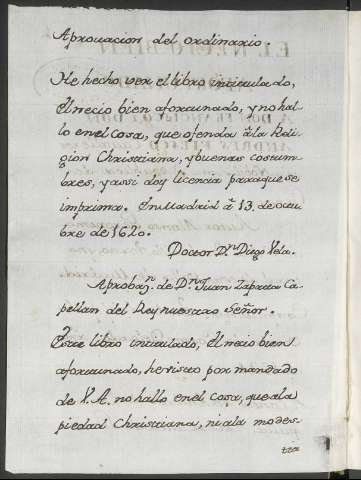 Aprouacion del ordinario.
He hecho ver el libro intitulado,
El necio bien afortunado, y no ha-
llo en el cosa, que ofenda à la Reli-
gion Christiana, y buenas costum-
bres, y assi doy licencia para que se
imprima. En Madrid à 13. de octu-
bre de 1620.
Doctor Dn. Diego Vela.
Aprobaзn. de Dn. Juan Zapata Ca-
pellan del Rey nuestro Señor.
Este libro intitulado, El necio bien
afortunado, he visto por mandado
de V. A. no hallo en el cosa, que a la
piedad Christiana, ni a la modes-